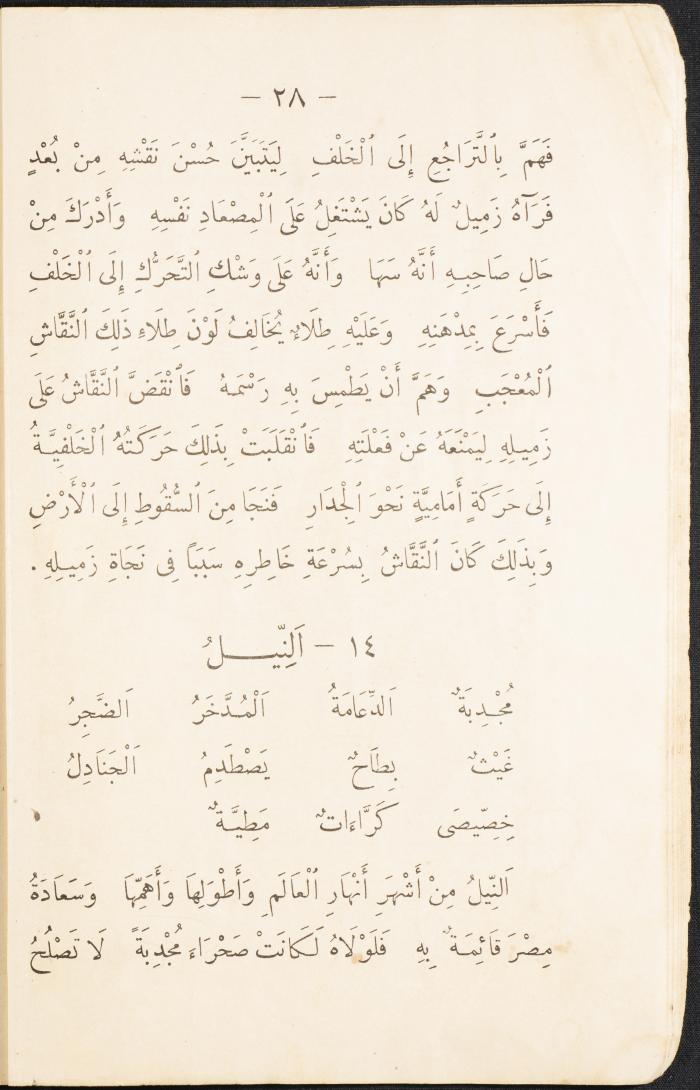 — ٢٨ —
فَهَمَّ بِٱلتَّرَاجُعِ إِلَى ٱلْخَلْفِ لِيَتَبَيَّنَ حُسْنَ نَقْشِهِ مِنْ بُعْدٍ
فَرَآهُ زَمِيلٌ لَهُ كَانَ يَشْتَغِلُ عَلَى ٱلْمِصْعَادِ نَفْسِهِ وَأَدْرَكَ مِنْ
حَالِ صَاحِبِهِ أَنَّهُ سَهَا وَأَنَّهُ عَلَى وَشْكِ ٱلتَّحَرُّكِ إِلَى ٱلْخَلْفِ
فَأَسْرَعَ بِمِدْهَنِهِ وَعَلَيْهِ طِلَاءٌ يُخَالِفُ لَوْنَ طِلَاءِ ذَلِكَ ٱلنَّقَّاشِ
ٱلْمُعْجَبِ وَهَمَّ أَنْ يَطْمِسَ بِهِ رَسْمَهُ فَٱنْقَضَّ ٱلنَّقَّاشُ عَلَى
زَمِيلِهِ لِيَمْنَعَهُ عَنْ فَعْلَتِهِ فَٱنْقَلَبَتْ بِذَلِكَ حَرَكَتُهُ ٱلْخَلْفِيَّةُ
إِلَى حَرَكَةٍ أَمَامِيَّةٍ نَحْوَ ٱلْجِدَارِ فَنَجَا مِنَ ٱلسُّقُوطِ إِلَى ٱلْأَرْضِ
وَبِذَلِكَ كَانَ ٱلنَّقَّاشُ بِسُرْعَةِ خَاطِرِهِ سَبَبًا فِى نَجَاةِ زَمِيلِهِ .
١٤ — اَلنِّيلُ
مُجْدِبَةٌ اَلدِّعَامَةُ اَلْمُدَّخَرُ اَلضَّجِرُ
غَيْثٌ بِطَاحٌ يَصْطَدِمُ اَلْجَنَادِلُ
خِصِّيصَى كَرَّاءَاتٌ مَطِيَّةٌ
اَلنِّيلُ مِنْ أَشْهَرِ أَنْهَارِ ٱلْعَالَمِ وَأَطْوَلِهَا وَأَهَمِّهَا وَسَعَادَةُ
مِصْرَ قَائِمَةٌ بِهِ فَلَوْلَاهُ لَكَانَتْ صَحْرَاءَ مُجْدِبَةً لَا تَصْلُحُ